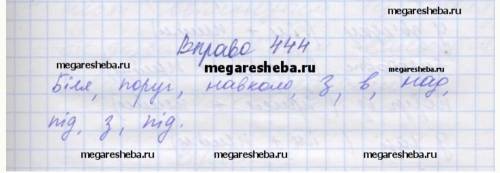 megaresheba.ru
Вправа 444
megaresheba.ru
megaresheba.ru
megaresheba.ru
Біля, поруч, навколо, з, в, над,
під, з, під.
megaresheba.ru
megaresheba.ru
megaresheba.ru